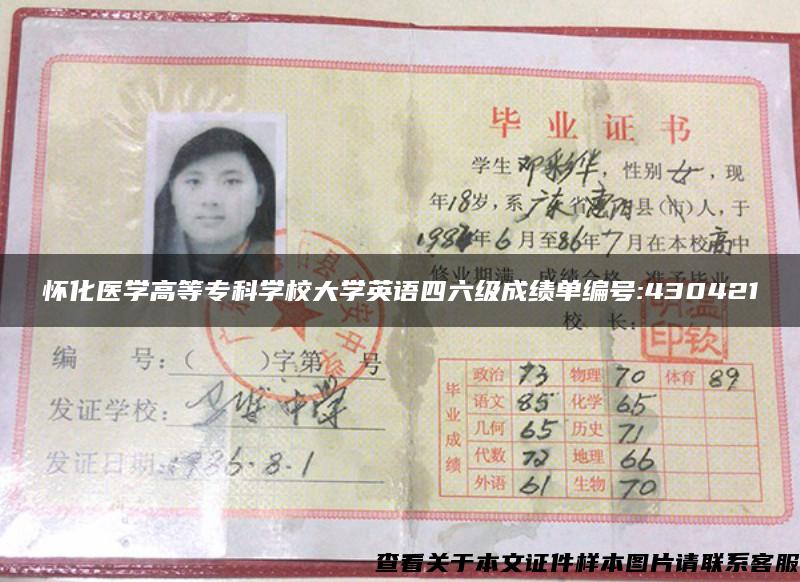 毕业证书
学生邓彩华，性别女，现
年18岁，系广东省惠阳县(市)人，于
1984年6月至86年7月在本校高中
修业期满，成绩合格，准予毕业
怀化医学高等专科学校大学英语四六级成绩单编号:430421
校 长：
编 号：( )字第 号
发证学校：
发证日期：1986.8.1
毕业成绩
政治 73 物理 70 体育 89
语文 85 化学 65
几何 65 历史 71
代数 72 地理 66
外语 61 生物 70
查看关于本文证件样本图片请联系客服